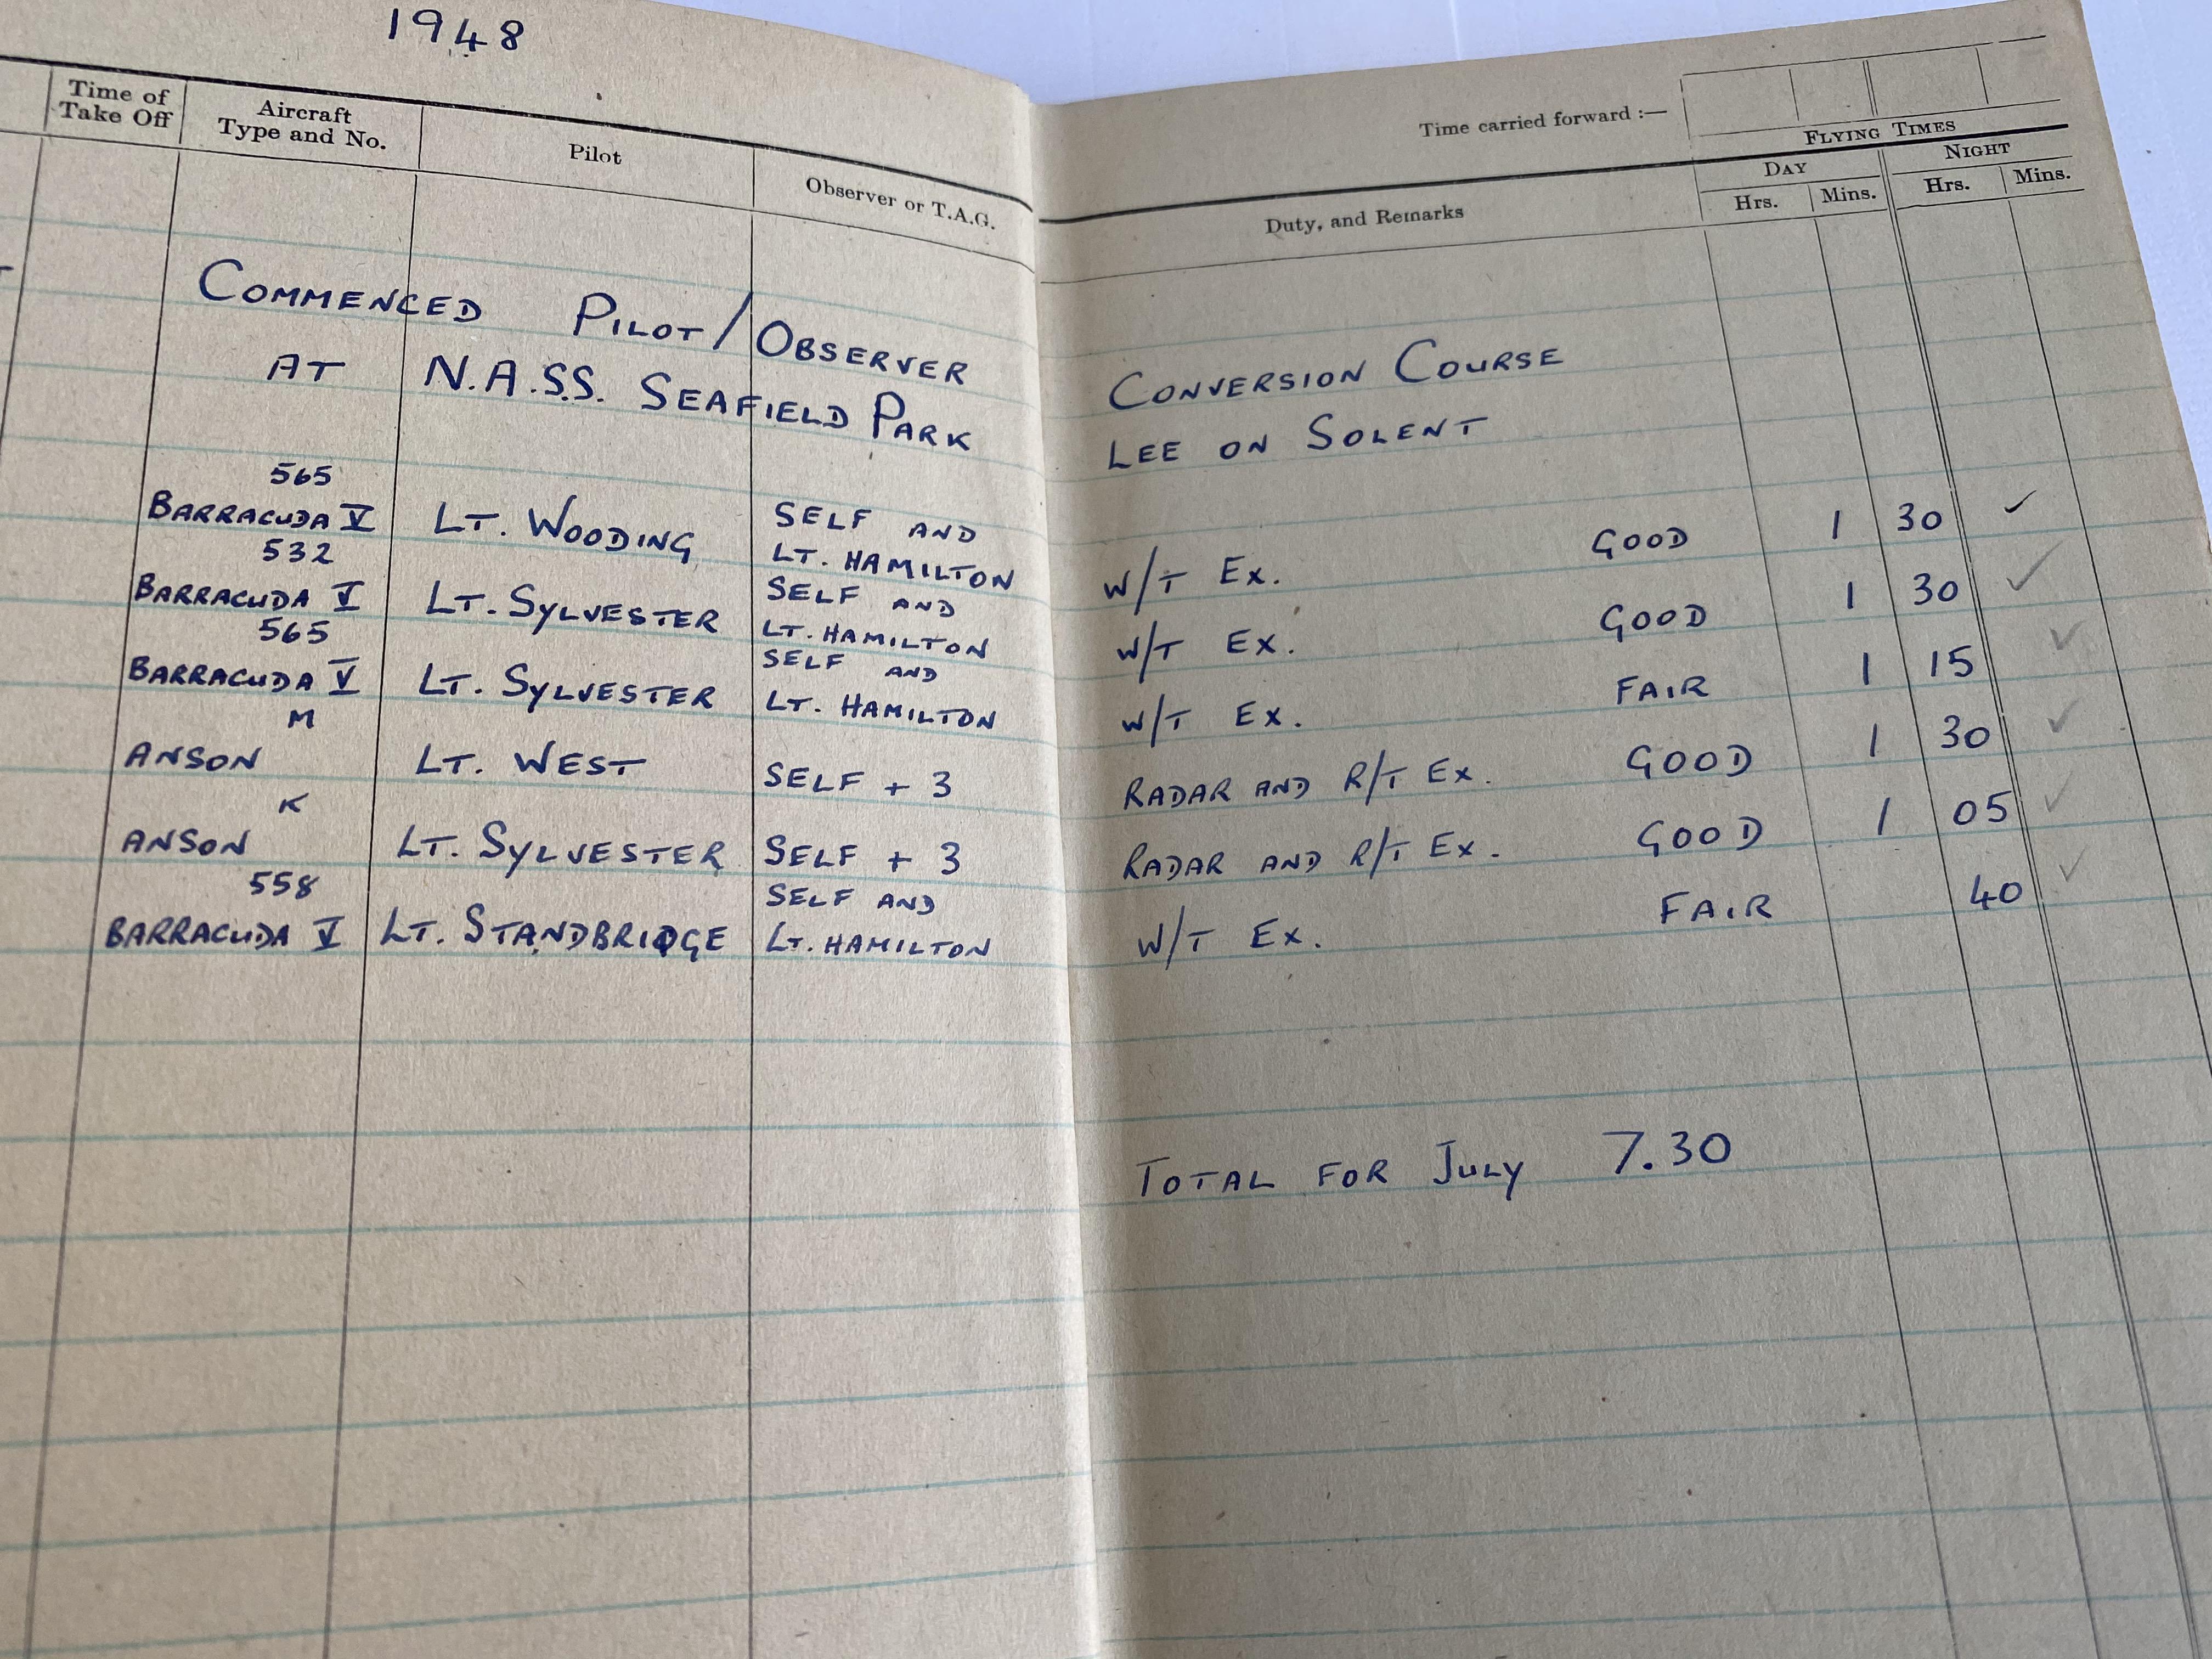 1948
Time carried forward :—
Time of Take Off Aircraft Type and No. Pilot Observer or T.A.G. Duty, and Remarks FLYING TIMES
DAY NIGHT
Hrs. Mins. Hrs. Mins.
COMMENCED PILOT/OBSERVER CONVERSION COURSE
AT N.A.S.S. SEAFIELD PARK LEE ON SOLENT
565 SELF AND
BARRACUDA V LT. WOODING LT. HAMILTON W/T EX. GOOD 1 30 ✓
532 SELF AND
BARRACUDA V LT. SYLVESTER LT. HAMILTON W/T EX. GOOD 1 30 ✓
565 SELF AND
BARRACUDA V LT. SYLVESTER LT. HAMILTON W/T EX. FAIR 1 15 ✓
M
ANSON LT. WEST SELF + 3 RADAR AND R/T EX. GOOD 1 30 ✓
K
ANSON LT. SYLVESTER SELF + 3 RADAR AND R/T EX. GOOD 1 05 ✓
558 SELF AND
BARRACUDA V LT. STANDBRIDGE LT. HAMILTON W/T EX. FAIR 40 ✓
TOTAL FOR JULY 7.30